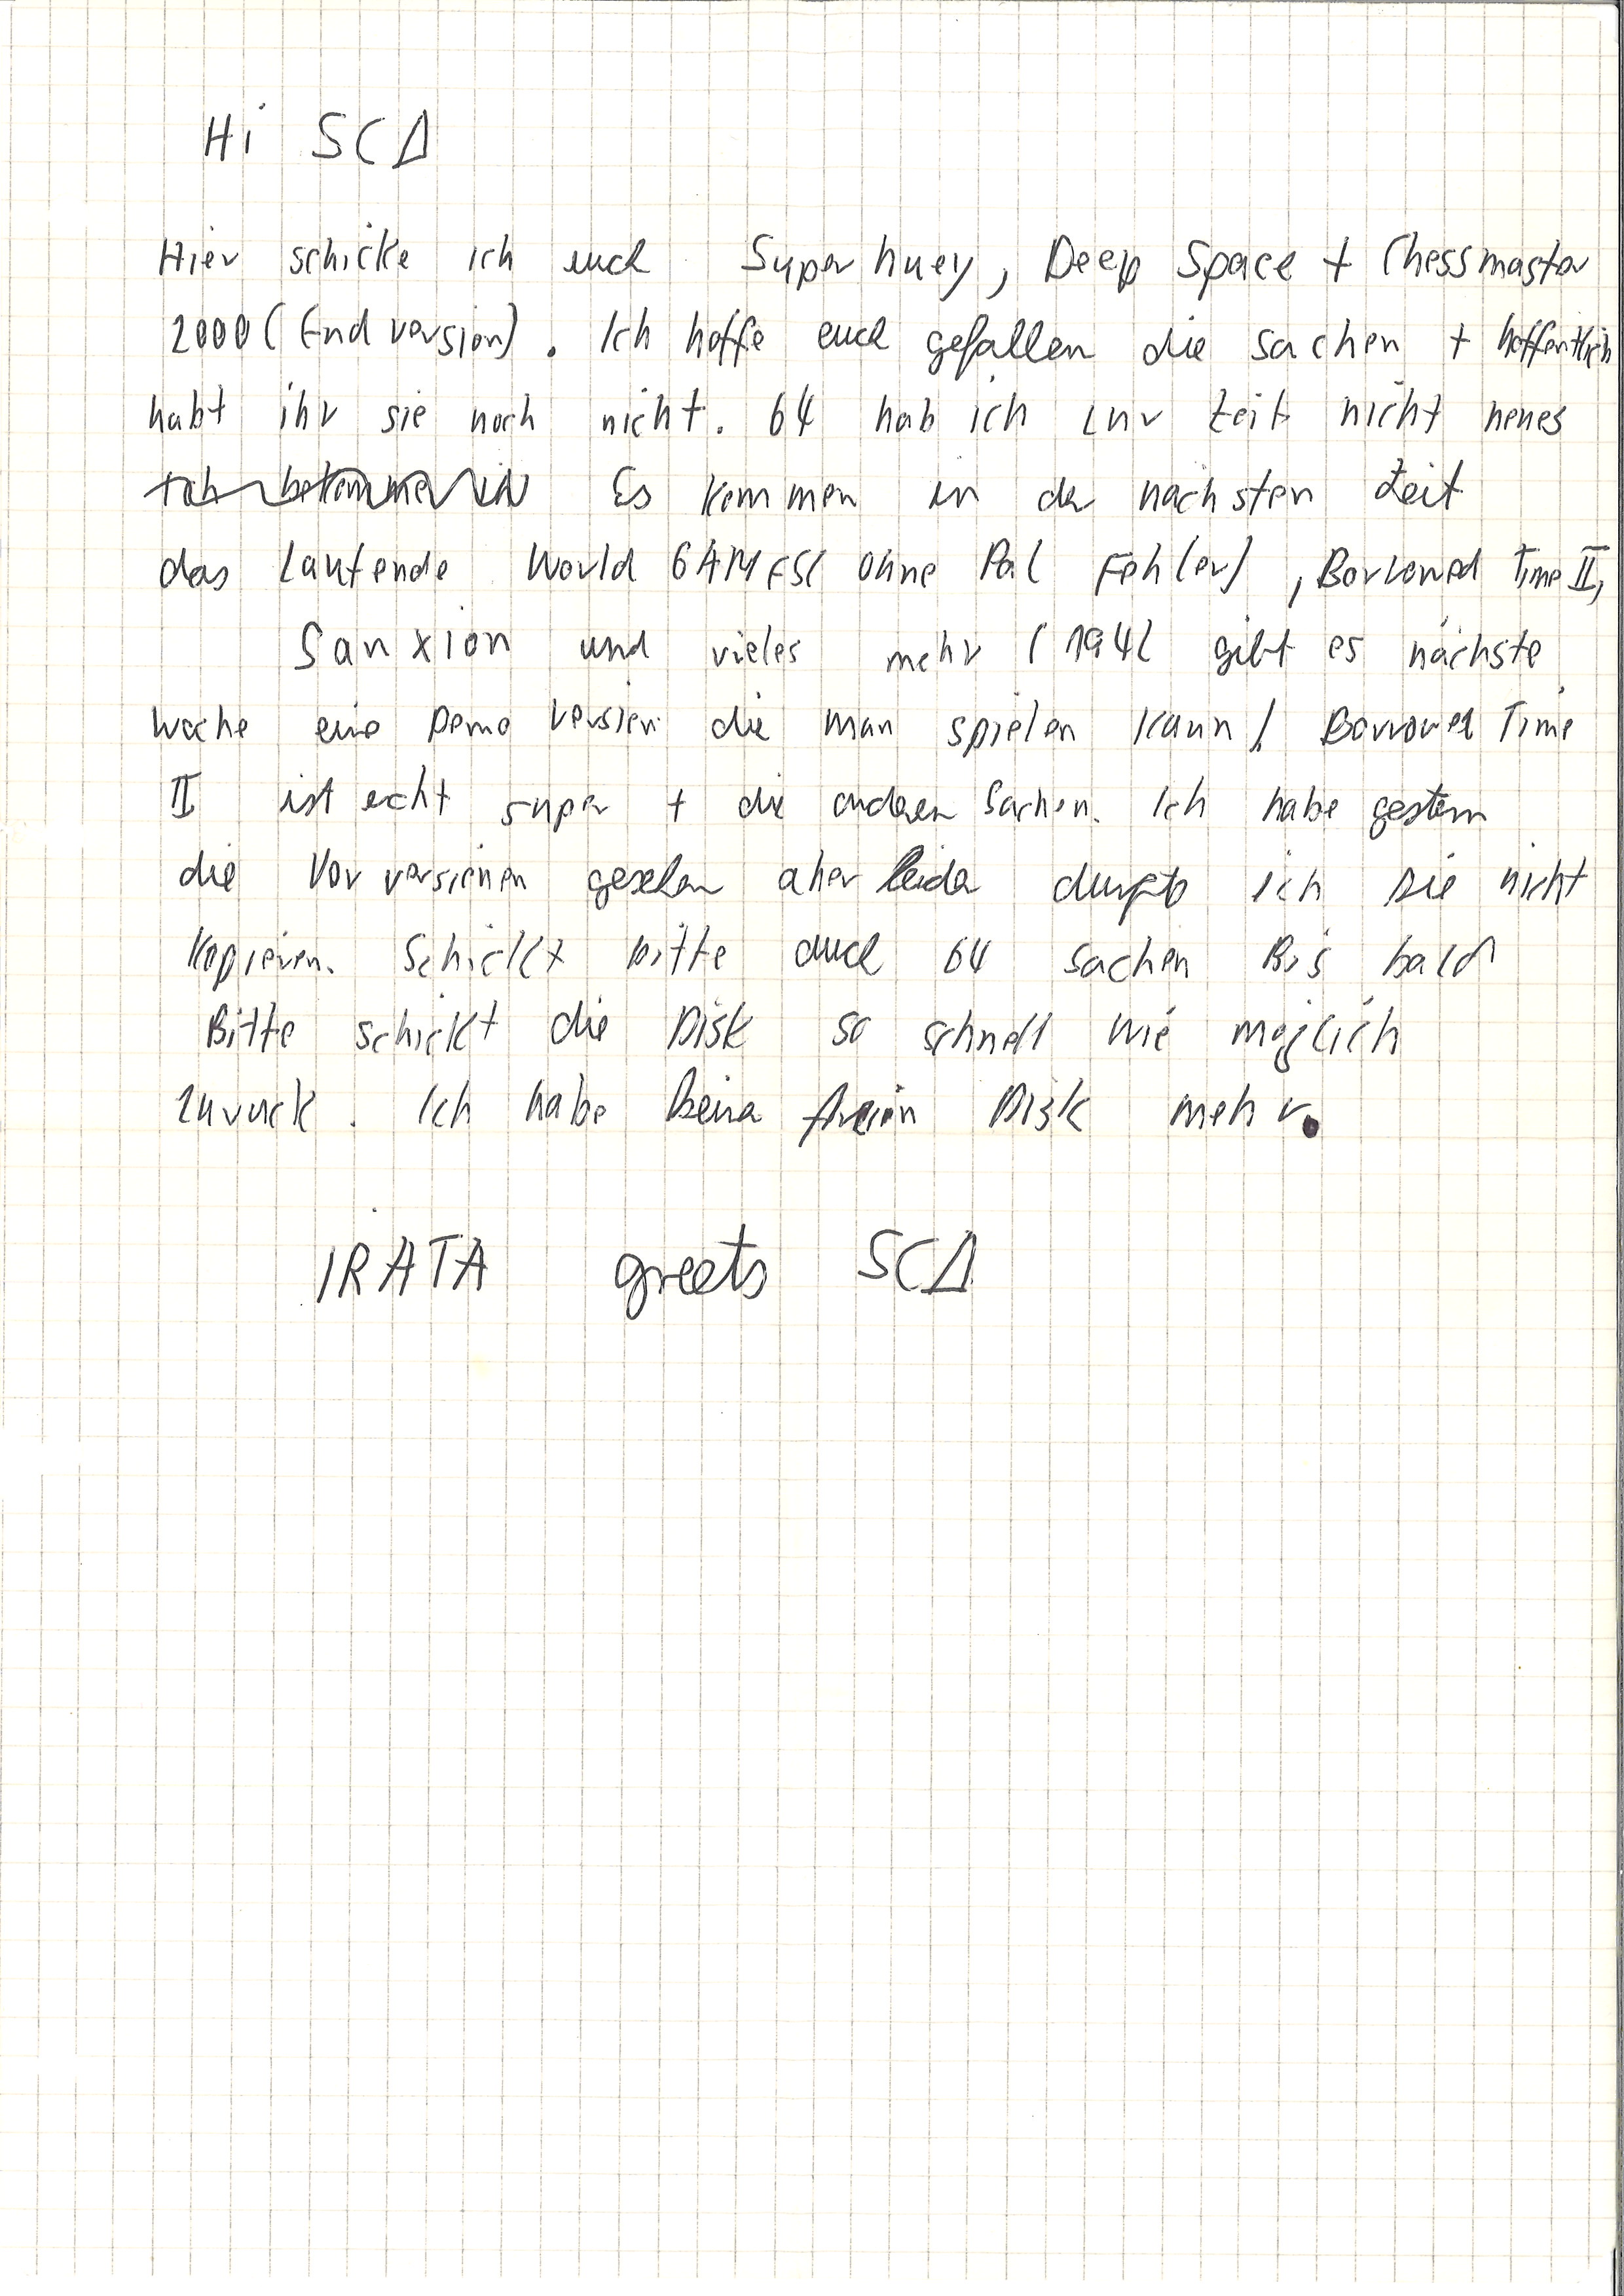 Hi SCA
Hier schicke ich euch Super huey, Deep Space + Chessmaster
2000 (End version). Ich hoffe euch gefallen die sachen + hoffentlich
habt ihr sie noch nicht. 64 hab ich zur Zeit nicht neues
Ich bekomme in Es kommen in der nächsten Zeit
das Laufende World GAMES( ohne Pal Fehler), Borrowed Time II,
Sanxion und vieles mehr (1942 gibt es nächste
Woche eine Demo version die man spielen kann). Borrowed Time
II ist echt super + die anderen Sachen. Ich habe gestern
die Vor versionen gesehen aber leider durfte ich sie nicht
kopieren. Schickt bitte auch 64 sachen Bis bald
Bitte schickt die Disk so schnell wie möglich
zurück. Ich habe keine freien Disk mehr.
IRATA greets SCA